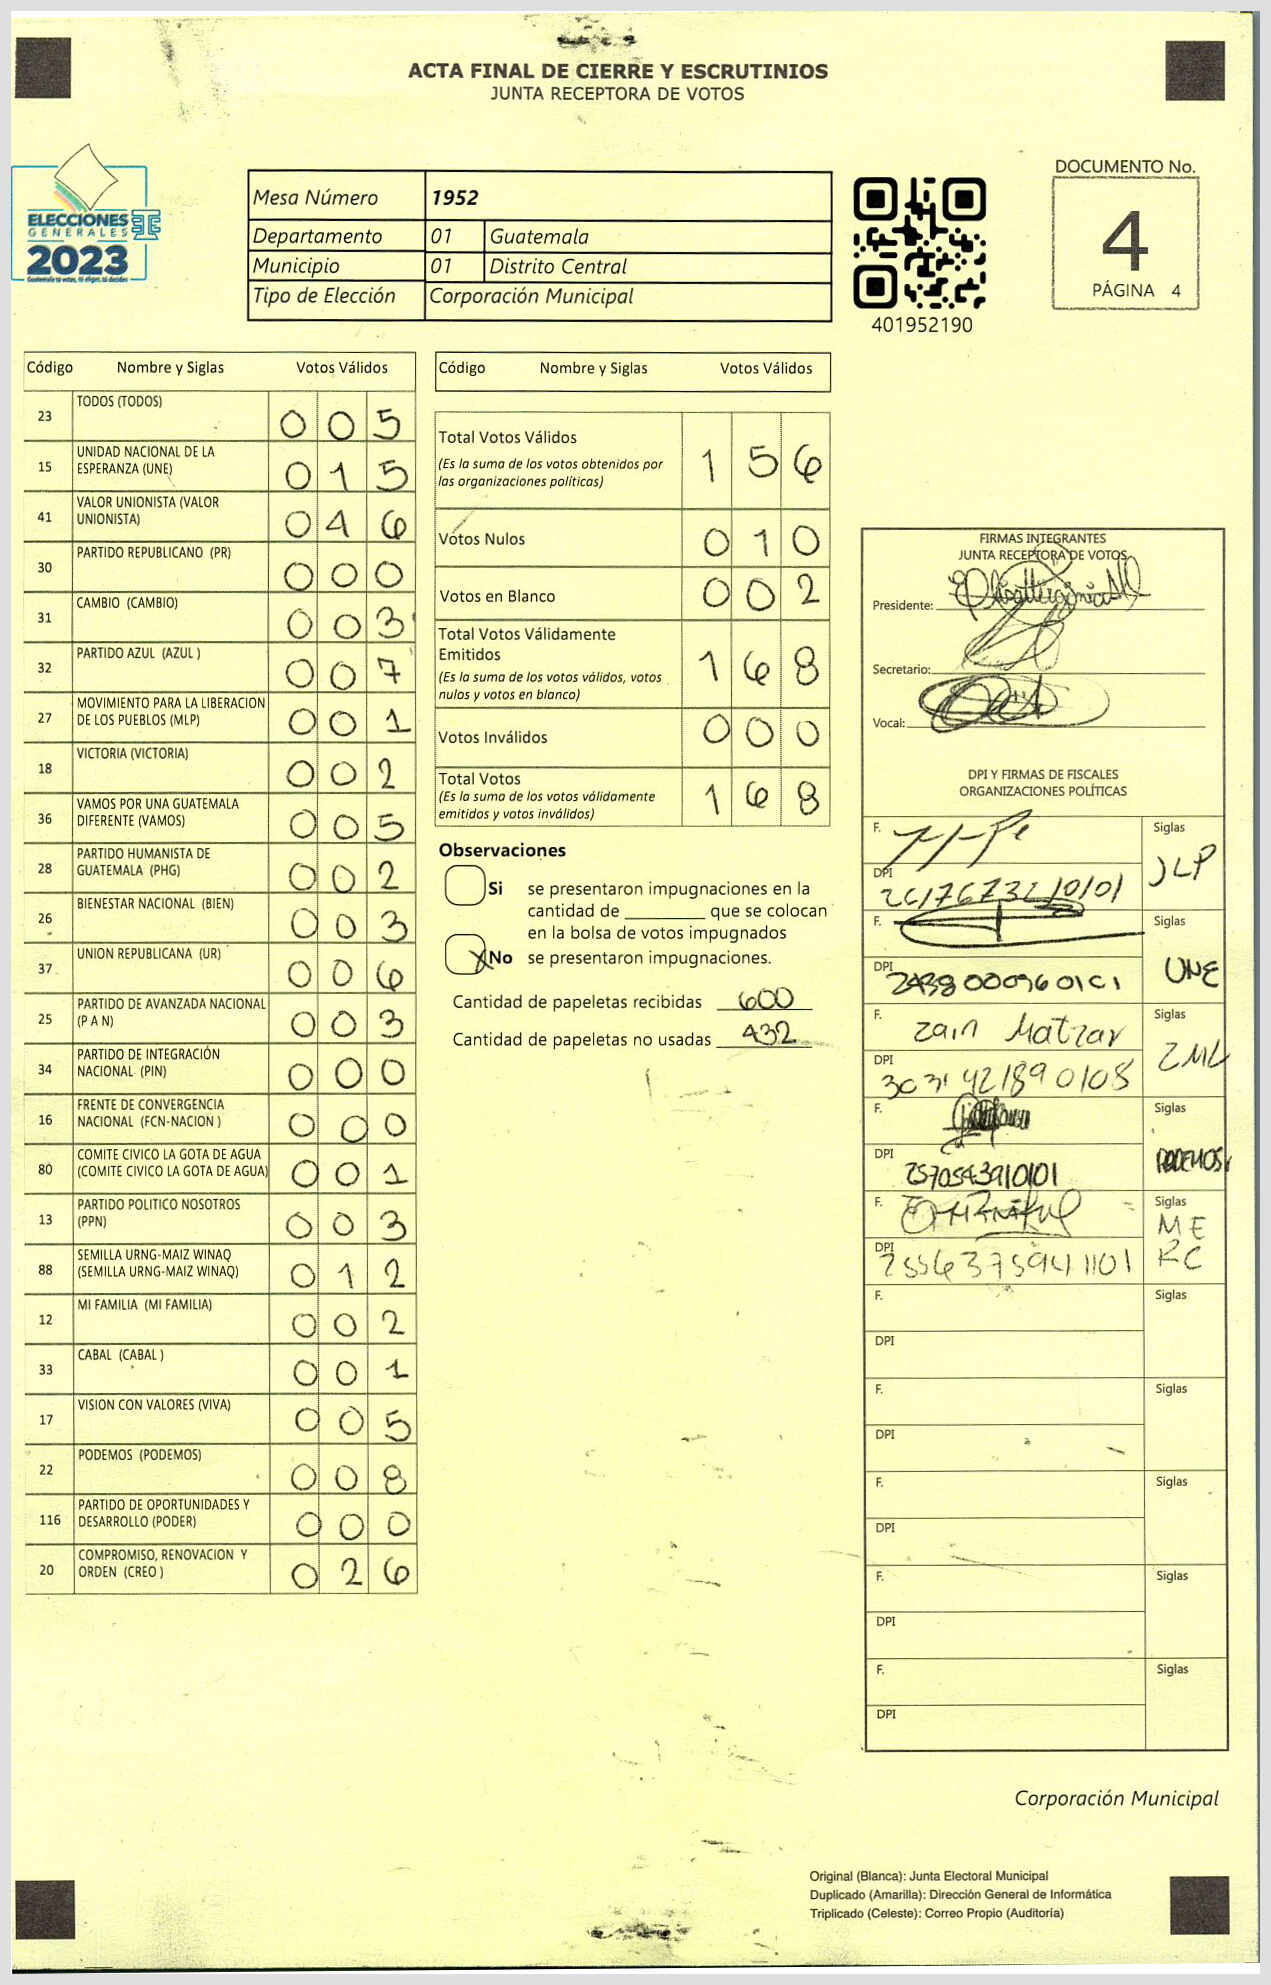 ACTA FINAL DE CIERRE Y ESCRUTINIOS
JUNTA RECEPTORA DE VOTOS
ELECCIONES
GENERALES
2023
Mesa Número 1952
Departamento 01 Guatemala
Municipio 01 Distrito Central
Tipo de Elección Corporación Municipal
401952190
DOCUMENTO No.
4
PÁGINA 4
Código Nombre y Siglas Votos Válidos
23 TODOS (TODOS) 0 0 5
15 UNIDAD NACIONAL DE LA
ESPERANZA (UNE) 0 1 5
41 VALOR UNIONISTA (VALOR
UNIONISTA) 0 4 6
30 PARTIDO REPUBLICANO (PR) 0 0 0
31 CAMBIO (CAMBIO) 0 0 3
32 PARTIDO AZUL (AZUL ) 0 0 7
27 MOVIMIENTO PARA LA LIBERACION
DE LOS PUEBLOS (MLP) 0 0 1
18 VICTORIA (VICTORIA) 0 0 2
36 VAMOS POR UNA GUATEMALA
DIFERENTE (VAMOS) 0 0 5
28 PARTIDO HUMANISTA DE
GUATEMALA (PHG) 0 0 2
26 BIENESTAR NACIONAL (BIEN) 0 0 3
37 UNION REPUBLICANA (UR) 0 0 6
25 PARTIDO DE AVANZADA NACIONAL
(P A N) 0 0 3
34 PARTIDO DE INTEGRACIÓN
NACIONAL (PIN) 0 0 0
16 FRENTE DE CONVERGENCIA
NACIONAL (FCN-NACION ) 0 0 0
80 COMITE CIVICO LA GOTA DE AGUA
(COMITE CIVICO LA GOTA DE AGUA) 0 0 1
13 PARTIDO POLITICO NOSOTROS
(PPN) 0 0 3
88 SEMILLA URNG-MAIZ WINAQ
(SEMILLA URNG-MAIZ WINAQ) 0 1 2
12 MI FAMILIA (MI FAMILIA) 0 0 2
33 CABAL (CABAL ) 0 0 1
17 VISION CON VALORES (VIVA) 0 0 5
22 PODEMOS (PODEMOS) 0 0 8
116 PARTIDO DE OPORTUNIDADES Y
DESARROLLO (PODER) 0 0 0
20 COMPROMISO, RENOVACION Y
ORDEN (CREO ) 0 2 6
Código Nombre y Siglas Votos Válidos
Total Votos Válidos 1 5 6
(Es la suma de los votos obtenidos por
las organizaciones políticas)
Votos Nulos 0 1 0
Votos en Blanco 0 0 2
Total Votos Válidamente
Emitidos 1 6 8
(Es la suma de los votos válidos, votos
nulos y votos en blanco)
Votos Inválidos 0 0 0
Total Votos 1 6 8
(Es la suma de los votos válidamente
emitidos y votos inválidos)
Observaciones
Si se presentaron impugnaciones en la
cantidad de ________ que se colocan
en la bolsa de votos impugnados
X No se presentaron impugnaciones.
Cantidad de papeletas recibidas 600
Cantidad de papeletas no usadas 432
FIRMAS INTEGRANTES
JUNTA RECEPTORA DE VOTOS
Presidente:
Secretario:
Vocal:
DPI Y FIRMAS DE FISCALES
ORGANIZACIONES POLÍTICAS
F. Siglas
DPI JLP
F. Siglas
DPI UNE
F. Zain Matzar Siglas
DPI ZML
F. Siglas
DPI 2570543910101 PODEMOS
F. Siglas
ME
DPI 2556375941101 RC
F. Siglas
DPI
F. Siglas
DPI
F. Siglas
DPI
F. Siglas
DPI
F. Siglas
DPI
Corporación Municipal
Original (Blanca): Junta Electoral Municipal
Duplicado (Amarilla): Dirección General de Informática
Triplicado (Celeste): Correo Propio (Auditoría)